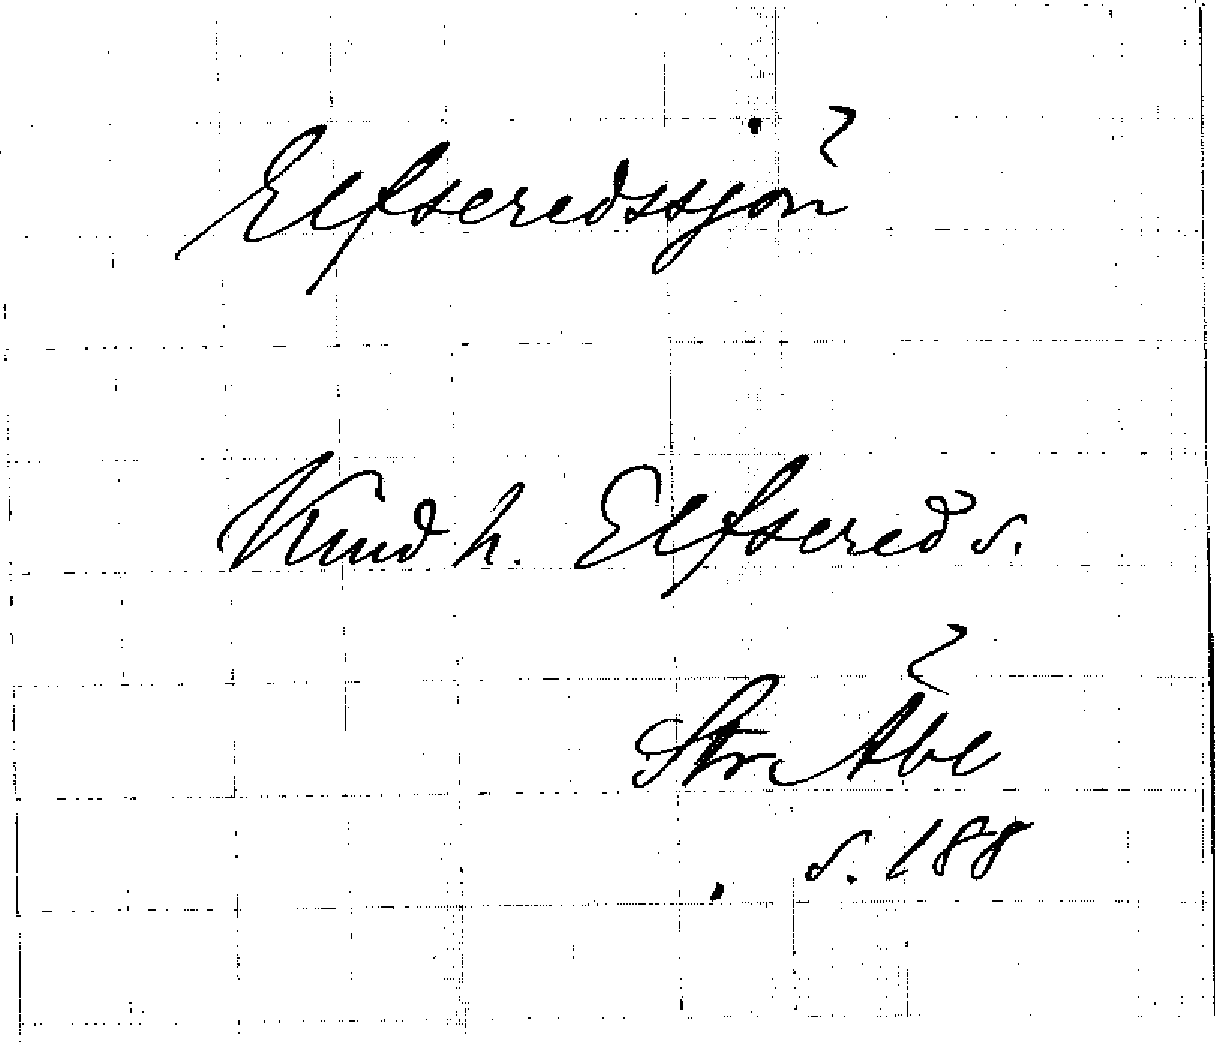 Elfseredssjön
Kind h. Elfsered s.
Str. Åbe
s. 188